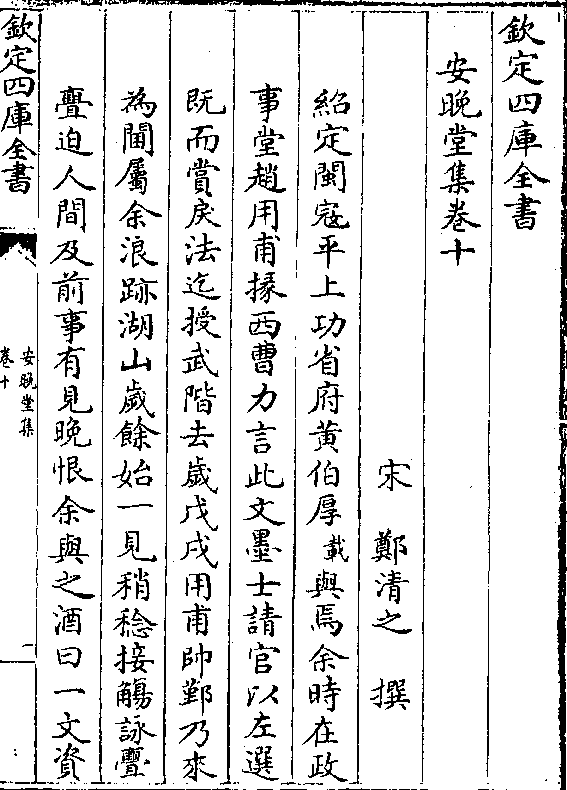 欽定四庫全書
安晚堂集卷十
宋 鄭清之 撰
紹定閩冦平上功省府黄伯厚載與焉余時在政
事堂趙用甫掾西曹力言此文墨士請官以左選
既而賞戾法迄授武階去歲戊戌用甫帥鄞乃來
為閫屬余浪跡湖山歲餘始一見稍稔接觴詠亹
亹迫人間及前事有見晚恨余與之酒曰一文資
欽定四庫全書
安晚堂集
卷十
一